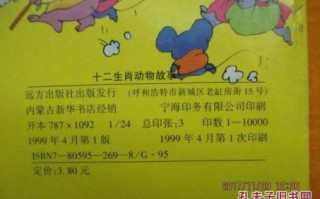 十二生肖动物故事
远方出版社出版发行 (呼和浩特市新城区老缸房街15号)
内蒙古新华书店经销 宁海印务有限公司印刷
开本787×1092 1/24 总印张:3 印数1—10000
1999年4月第1版 1999年4月第1次印刷
ISBN7—80595—269—8/G·95
定价:3.80元
孔夫子旧书网